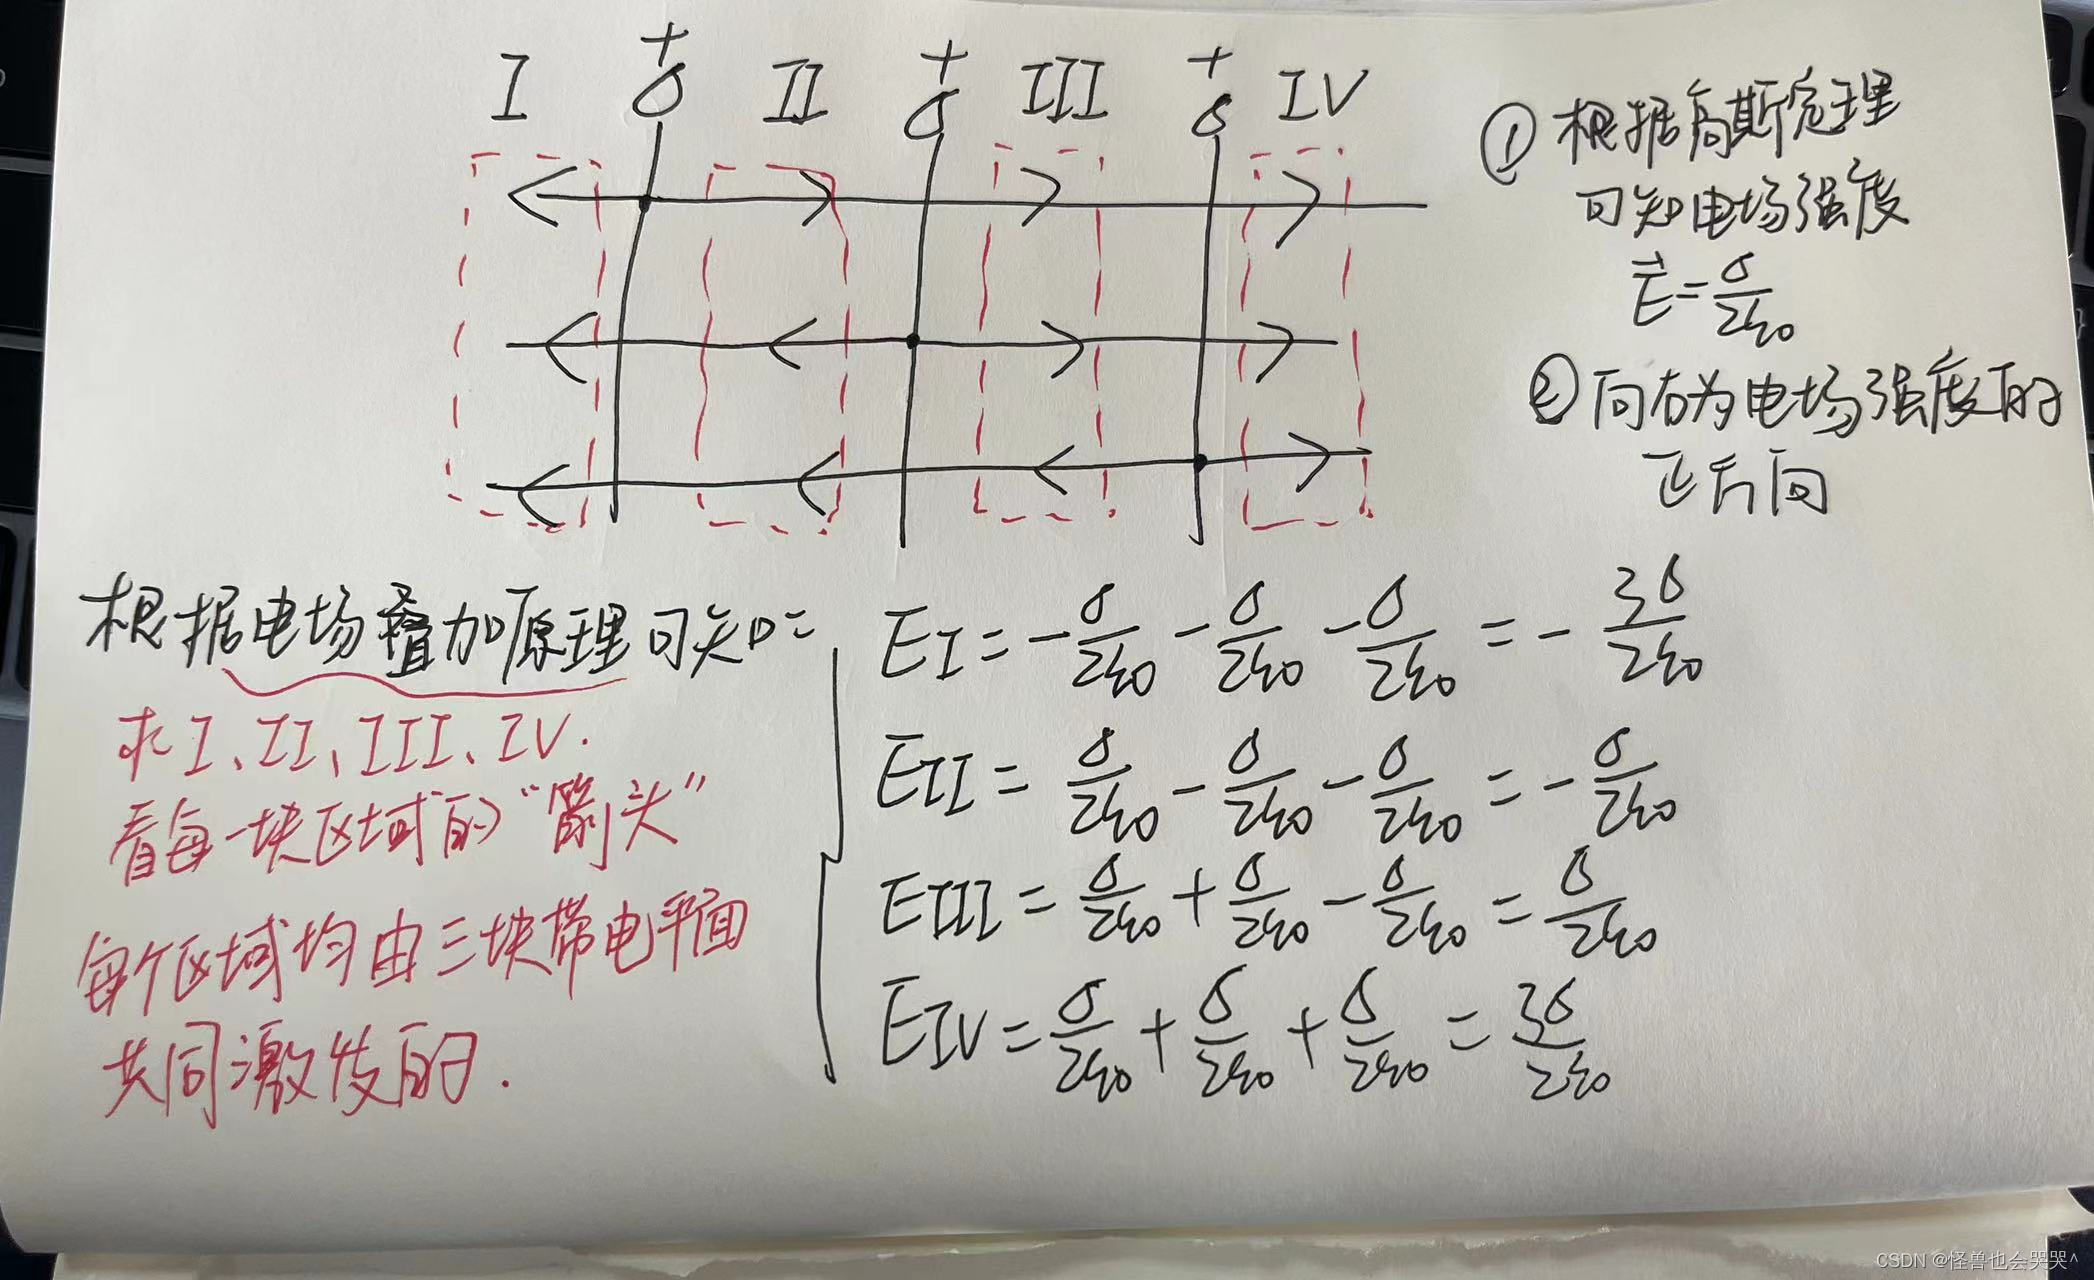 I + σ II + σ III + σ IV
① 根据高斯定理
可知电场强度
E⃗=σ/2ε0
② 向右为电场强度的
正方向
根据电场叠加原理可知:
求I、II、III、IV.
看每一块区域的“箭头”
每个区域均由三块带电平面
共同激发的.
EI = -σ/2ε0 - σ/2ε0 - σ/2ε0 = - 3σ/2ε0
EII = σ/2ε0 - σ/2ε0 - σ/2ε0 = - σ/2ε0
EIII = σ/2ε0 + σ/2ε0 - σ/2ε0 = σ/2ε0
EIV = σ/2ε0 + σ/2ε0 + σ/2ε0 = 3σ/2ε0
CSDN @怪兽也会哭哭^